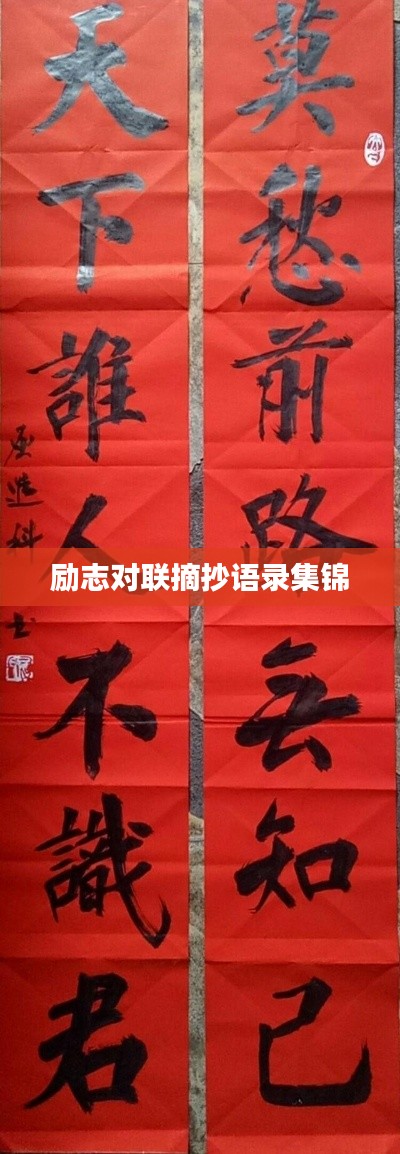 莫愁前路無知己
天下誰人不識君
励志对联摘抄语录集锦